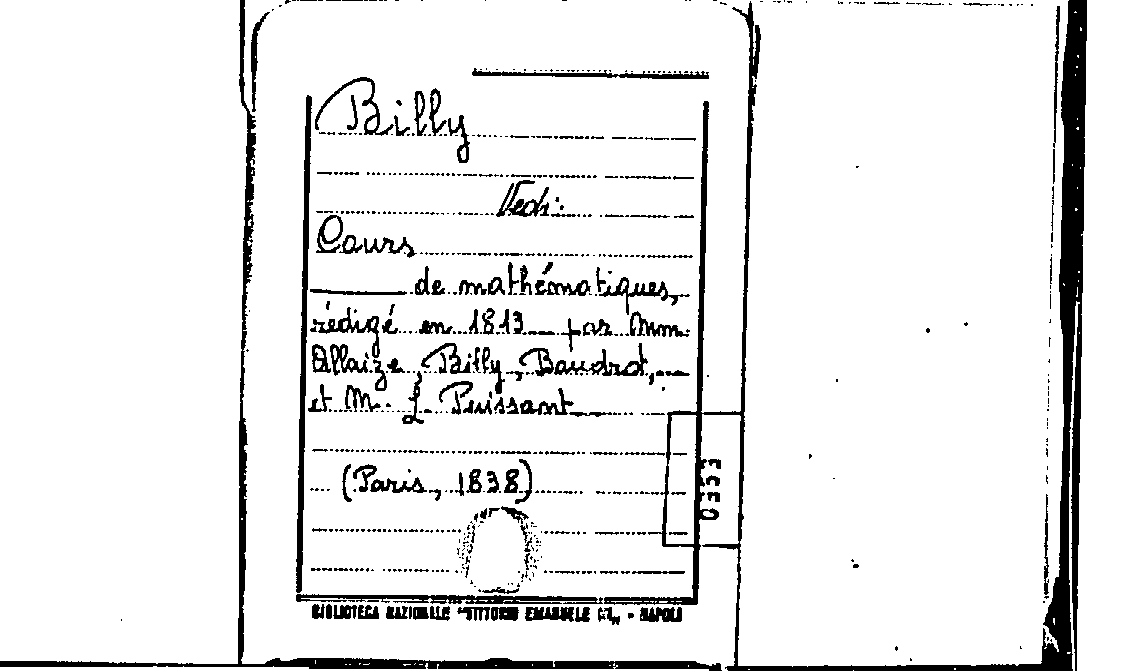 Billy
Vedi:
Cours
de mathématiques,
rédigé en 1813 par Mm.
Allaize, Billy, Baudrot,
et M. L. Puissant
(Paris, 1838)
0353
BIBLIOTECA NAZIONALE "VITTORIO EMANUELE III„ - NAPOLI